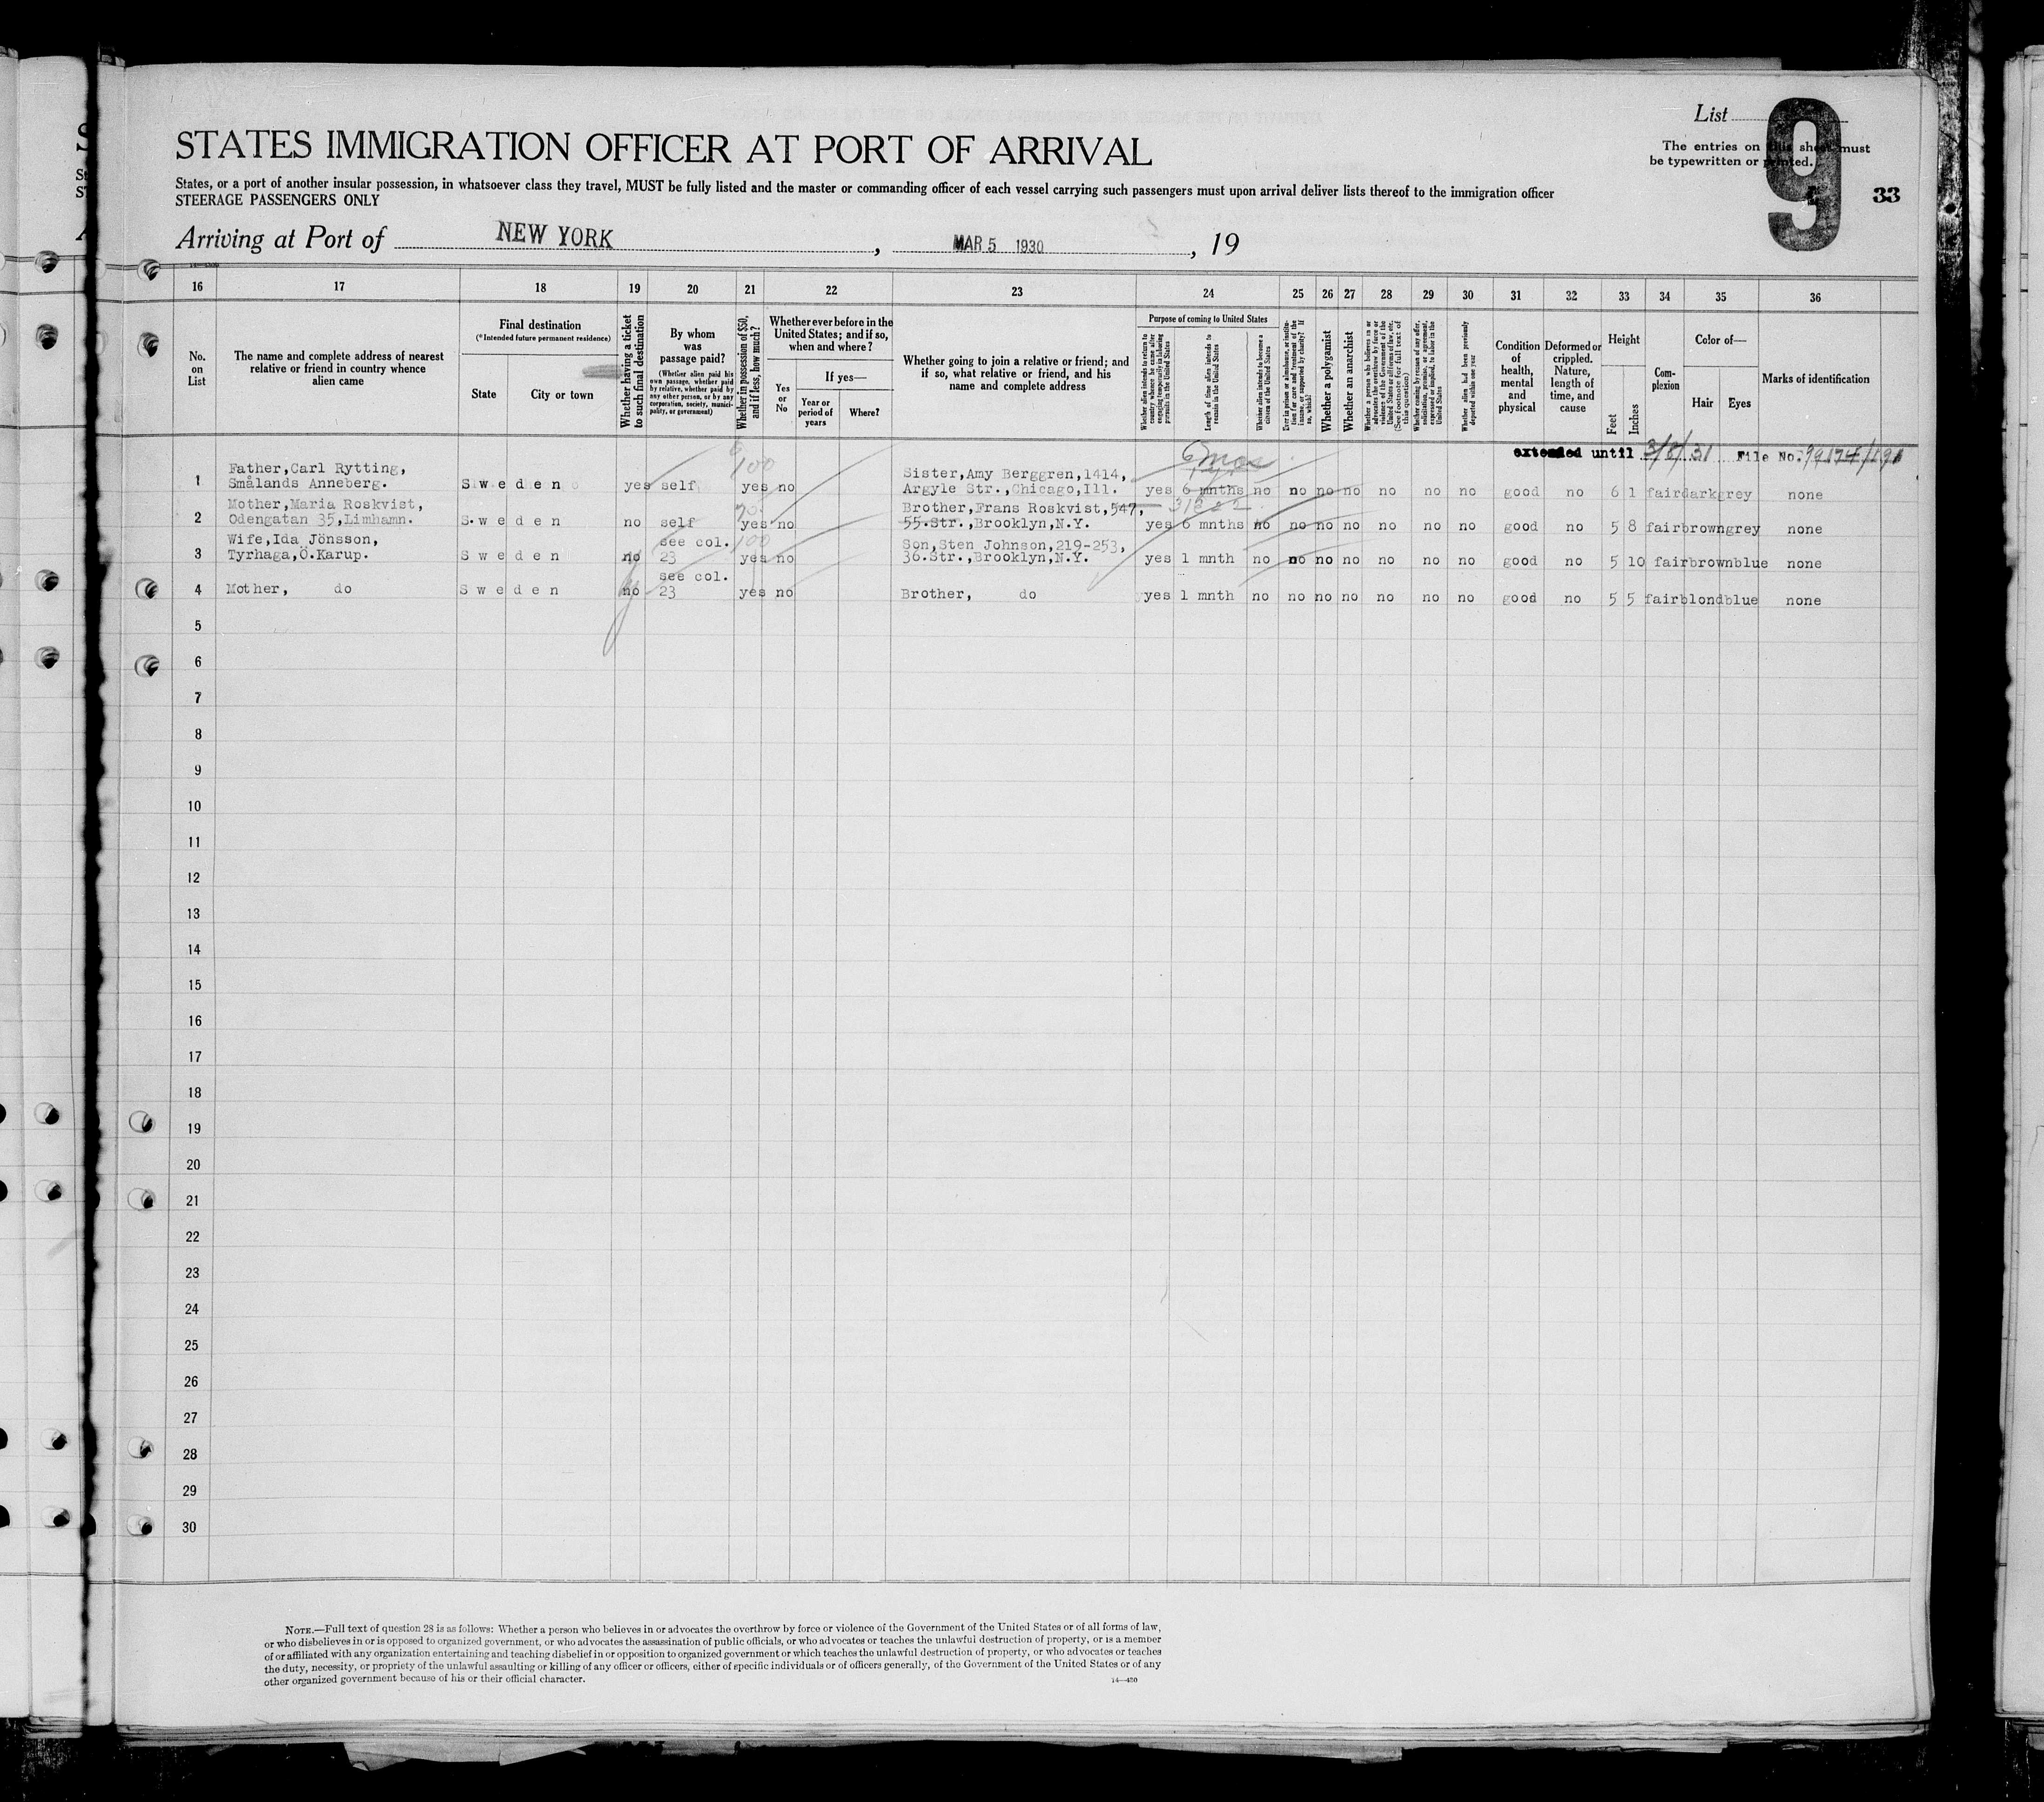 List
9
The entries on this sheet must
be typewritten or printed.
33
STATES IMMIGRATION OFFICER AT PORT OF ARRIVAL
States, or a port of another insular possession, in whatsoever class they travel, MUST be fully listed and the master or commanding officer of each vessel carrying such passengers must upon arrival deliver lists thereof to the immigration officer
STEERAGE PASSENGERS ONLY
Arriving at Port of NEW YORK , MAR 5 1930 , 19
16 17 18 19 20 21 22 23 24 25 26 27 28 29 30 31 32 33 34 35 36
No. on List
The name and complete address of nearest relative or friend in country whence alien came
Final destination
(*Intended future permanent residence)
State
City or town
Whether having a ticket to such final destination
By whom was passage paid?
(Whether alien paid his own passage, whether paid by relative, whether paid by any other person, or by any corporation, society, municipality, or government)
Whether in possession of $50, and if less, how much?
Whether ever before in the United States; and if so, when and where?
Yes or No
If yes—
Year or period of years
Where?
Whether going to join a relative or friend; and if so, what relative or friend, and his name and complete address
Purpose of coming to United States
Whether alien intends to return to country whence he came after engaging temporarily in laboring pursuits in the United States
Length of time alien intends to remain in the United States
Whether alien intends to become a citizen of the United States
Ever in prison or almshouse, or institution for care and treatment of the insane, or supported by charity? If so, which?
Whether a polygamist
Whether an anarchist
Whether a person who believes in or advocates the overthrow by force or violence of the Government of the United States or all forms of law, etc. (See footnote for full text of this question)
Whether coming by reason of any offer, solicitation, promise, or agreement, expressed or implied, to labor in the United States
Whether alien had been previously deported within one year
Condition of health, mental and physical
Deformed or crippled. Nature, length of time, and cause
Height
Feet
Inches
Complexion
Color of—
Hair
Eyes
Marks of identification
extended until 3/8/31 File No.
6 mos
100
1 Father,Carl Rytting,
Smålands Anneberg. Sweden yes self yes no Sister,Amy Berggren,1414,
Argyle Str.,Chicago,Ill. yes 6 mnths no no no no no no no good no 6 1 fair dark grey none
2 Mother,Maria Roskvist,
Odengatan 35,Limhamn. Sweden no self yes no Brother,Frans Roskvist,547,
55.Str.,Brooklyn,N.Y. yes 6 mnths no no no no no no no good no 5 8 fair brown grey none
3 Wife,Ida Jönsson,
Tyrhaga,Ö.Karup. Sweden no see col.
23 100 yes no Son,Sten Johnson,219-253,
36.Str.,Brooklyn,N.Y. yes 1 mnth no no no no no no no good no 5 10 fair brown blue none
4 Mother, do Sweden no see col.
23 yes no Brother, do yes 1 mnth no no no no no no no good no 5 5 fair blond blue none
5
6
7
8
9
10
11
12
13
14
15
16
17
18
19
20
21
22
23
24
25
26
27
28
29
30
NOTE.—Full text of question 28 is as follows: Whether a person who believes in or advocates the overthrow by force or violence of the Government of the United States or of all forms of law,
or who disbelieves in or is opposed to organized government, or who advocates the assassination of public officials, or who advocates or teaches the unlawful destruction of property, or is a member
of or affiliated with any organization entertaining and teaching disbelief in or opposition to organized government or which teaches the unlawful destruction of property, or who advocates or teaches
the duty, necessity, or propriety of the unlawful assaulting or killing of any officer or officers, either of specific individuals or of officers generally, of the Government of the United States or of any
other organized government because of his or their official character.
14—420